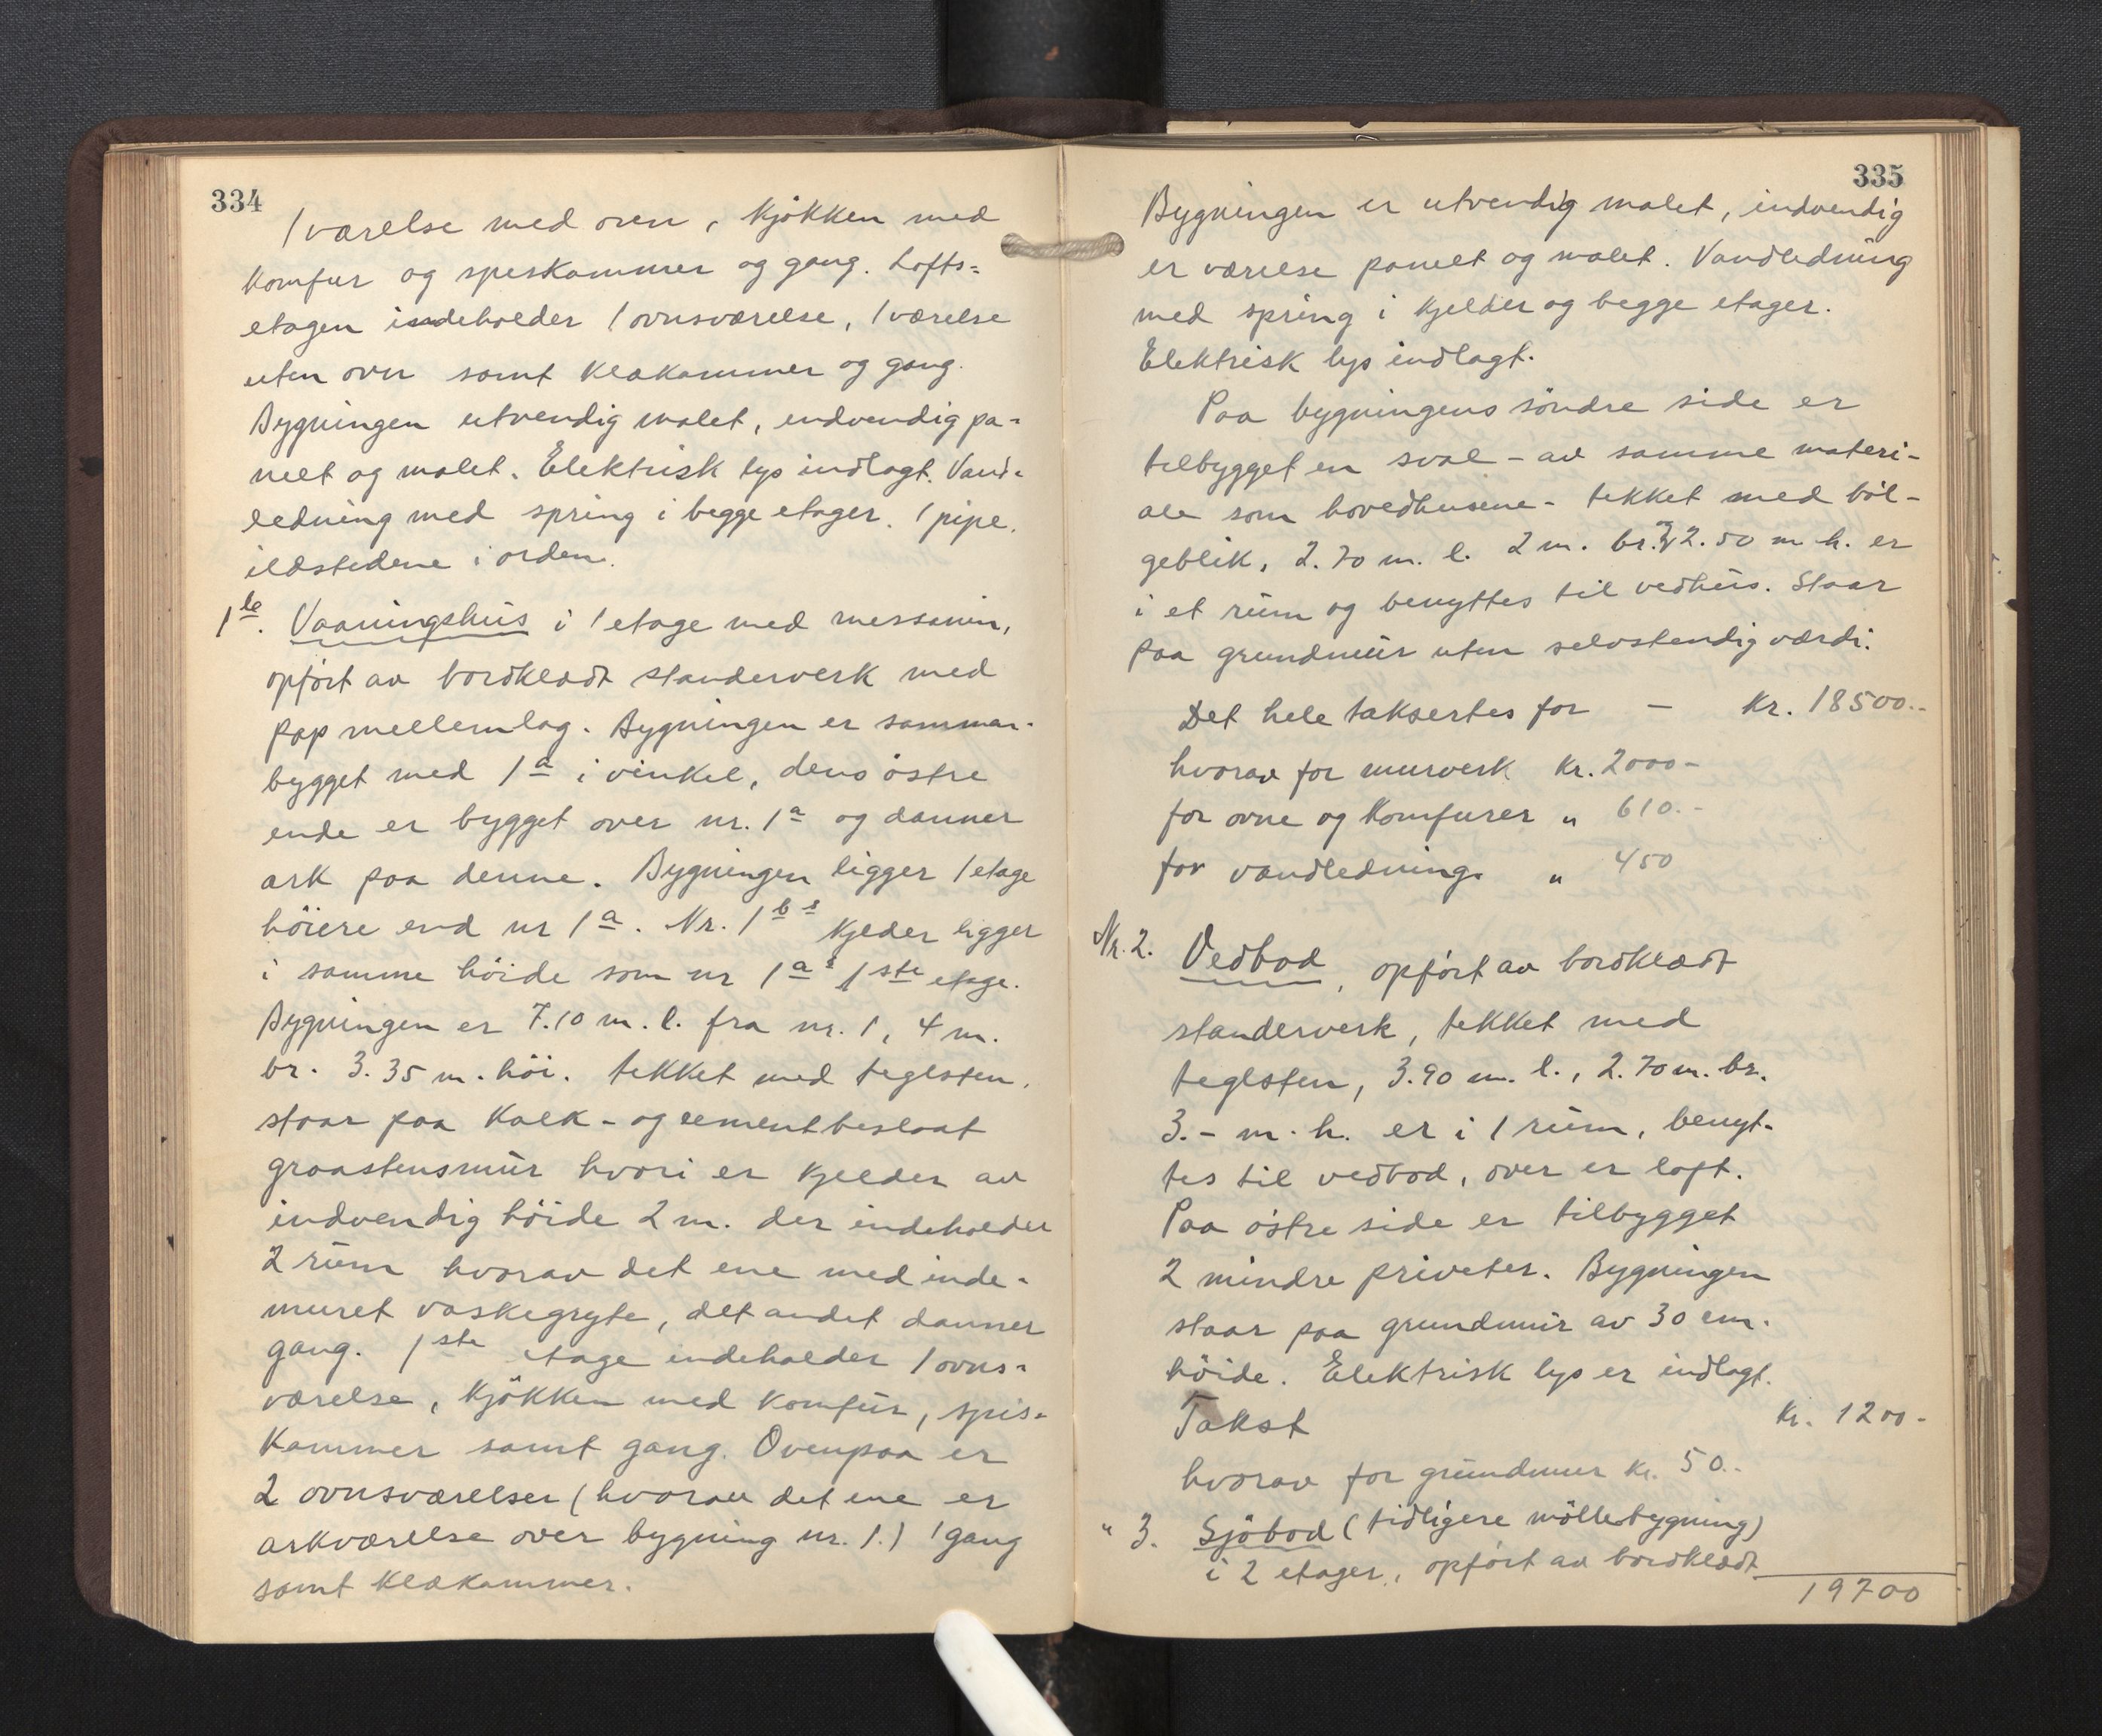 334
1 værelse med ovn, kjøkken med
komfur og speskammer og gang. Lofts=
etagen indeholder 1 ovnsværelse, 1 værelse
uten ovn samt klækammer og gang.
Bygningen utvendig malet, indvendig pa-
nelt og malet. Elektrisk lys indlagt. Vand-
ledning med spring i begge etager. 1 pipe.
ildstedene i orden.
1b. Vaaningshus i 1 etage med messanin,
opført av bordklædt standerverk med
pap mellemlag. Bygningen er sammen-
bygget med 1a i vinkel, dens østre
ende er bygget over nr. 1a og danner
ark paa denne. Bygningen ligger 1 etage
høiere end nr 1a. Nr. 1b s kjelder ligger
i samme høide som nr 1a s 1ste etage.
Bygningen er 7.10 m. l. fra nr. 1, 4 m.
br. 3.35 m. høi. tekket med teglsten,
staar paa kalk- og cementbeslaat
graastensmur hvori er kjelder av
indvendig høide 2 m. der indeholder
2 rum hvorav det ene med inde-
muret vaskegryte, det andet danner
gang. 1ste etage indeholder 1 ovns-
værelse, kjøkken med komfur, spis-
kammer samt gang. Ovenpaa er
2 ovnsværelser (hvorav det ene er
arkværelse over bygning nr. 1.) 1 gang
samt klækammer.
335
Bygningen er utvendig malet, indvendig
er værelse panelt og malet. Vandledning
med spring i kjelder og begge etager.
Elektrisk lys indlagt.
Paa bygningens søndre side er
tilbygget en sval - av samme materi-
ale som hovedhusene - tekket med bøl-
geblik, 2.70 m. l. 2 m. br. og 2.50 m h. er
i et rum og benyttes til vedhus. Staar
paa grundmur uten selvstendig værdi.
Det hele taksertes for - Kr. 18500.-
hvorav for murverk Kr. 2000-
for ovne og komfurer " 610.-
for vandledning. " 450
Nr. 2. Vedbod, opført av bordklædt
standerverk, tekket med
teglsten, 3.90 m. l., 2.70 m. br.
3.- m. h. er i 1 rum, benyt-
tes til vedbod, over er loft.
Paa østre side er tilbygget
2 mindre priveter. Bygningen
staar paa grundmur av 30 cm.
høide. Elektrisk lys er indlagt.
Takst Kr. 1200-
hvorav for grundmur Kr. 50.-
" 3. Sjøbod (tidligere møllebygning)
i 2 etager, opført av bordklædt
19700